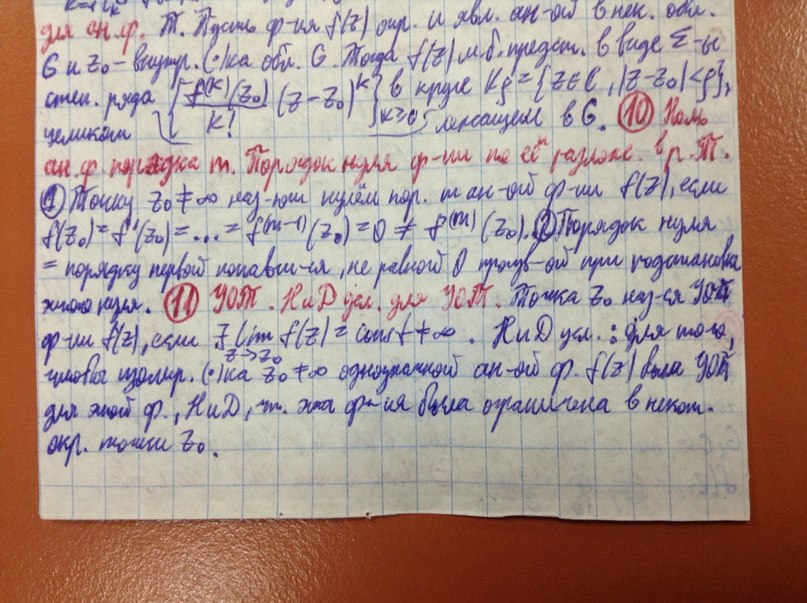 для ан. ф. Т. Пусть ф-ия f(z) опр. и явл. ан-ой в нек. обл.
G и z₀ - внутр. (·)ка обл. G. Тогда f(z) м.б. предст. в виде Σ-ы
степ. ряда {f^(k)(z₀)/k! (z-z₀)^k}k≥0 в круге Kρ = {z∈ℂ, |z-z₀|<ρ},
целиком лежащем в G. 10 Ноль
ан. ф. порядка m. Порядок нуля ф-ии по её разлож. в р. Т.
1 Точку z₀ ≠ ∞ наз-ют нулём пор. m ан-ой ф-ии f(z), если
f(z₀) = f'(z₀) = ... = f^(m-1)(z₀) = 0 ≠ f^(m)(z₀). 2 Порядок нуля
= порядку первой попавш-ся, не равной 0 произв-ой при подстановке
этого нуля. 11 УОТ. НиД усл. для УОТ. Точка z₀ наз-ся УОТ
ф-ии f(z), если ∃ lim z→z₀ f(z) = const ≠ ∞. НиД усл.: для того,
чтобы изолир. (·)ка z₀ ≠ ∞ однозначной ан-ой ф. f(z) была УОТ
для этой ф., НиД, чт. эта ф-ия была ограничена в неком.
окр. точки z₀.